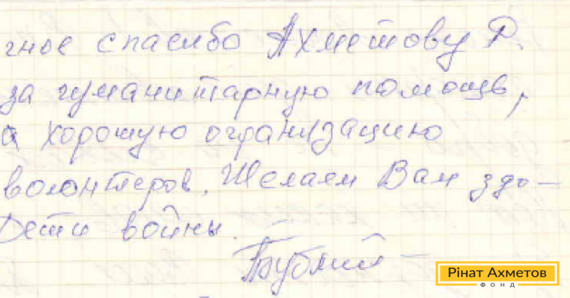 гное спасибо Ахметову Р.
за гуманитарную помощь,
а хорошую организацию
волонтеров. Желаем Вам здо-
Дети войны.
Рінат Ахметов
ФОНД